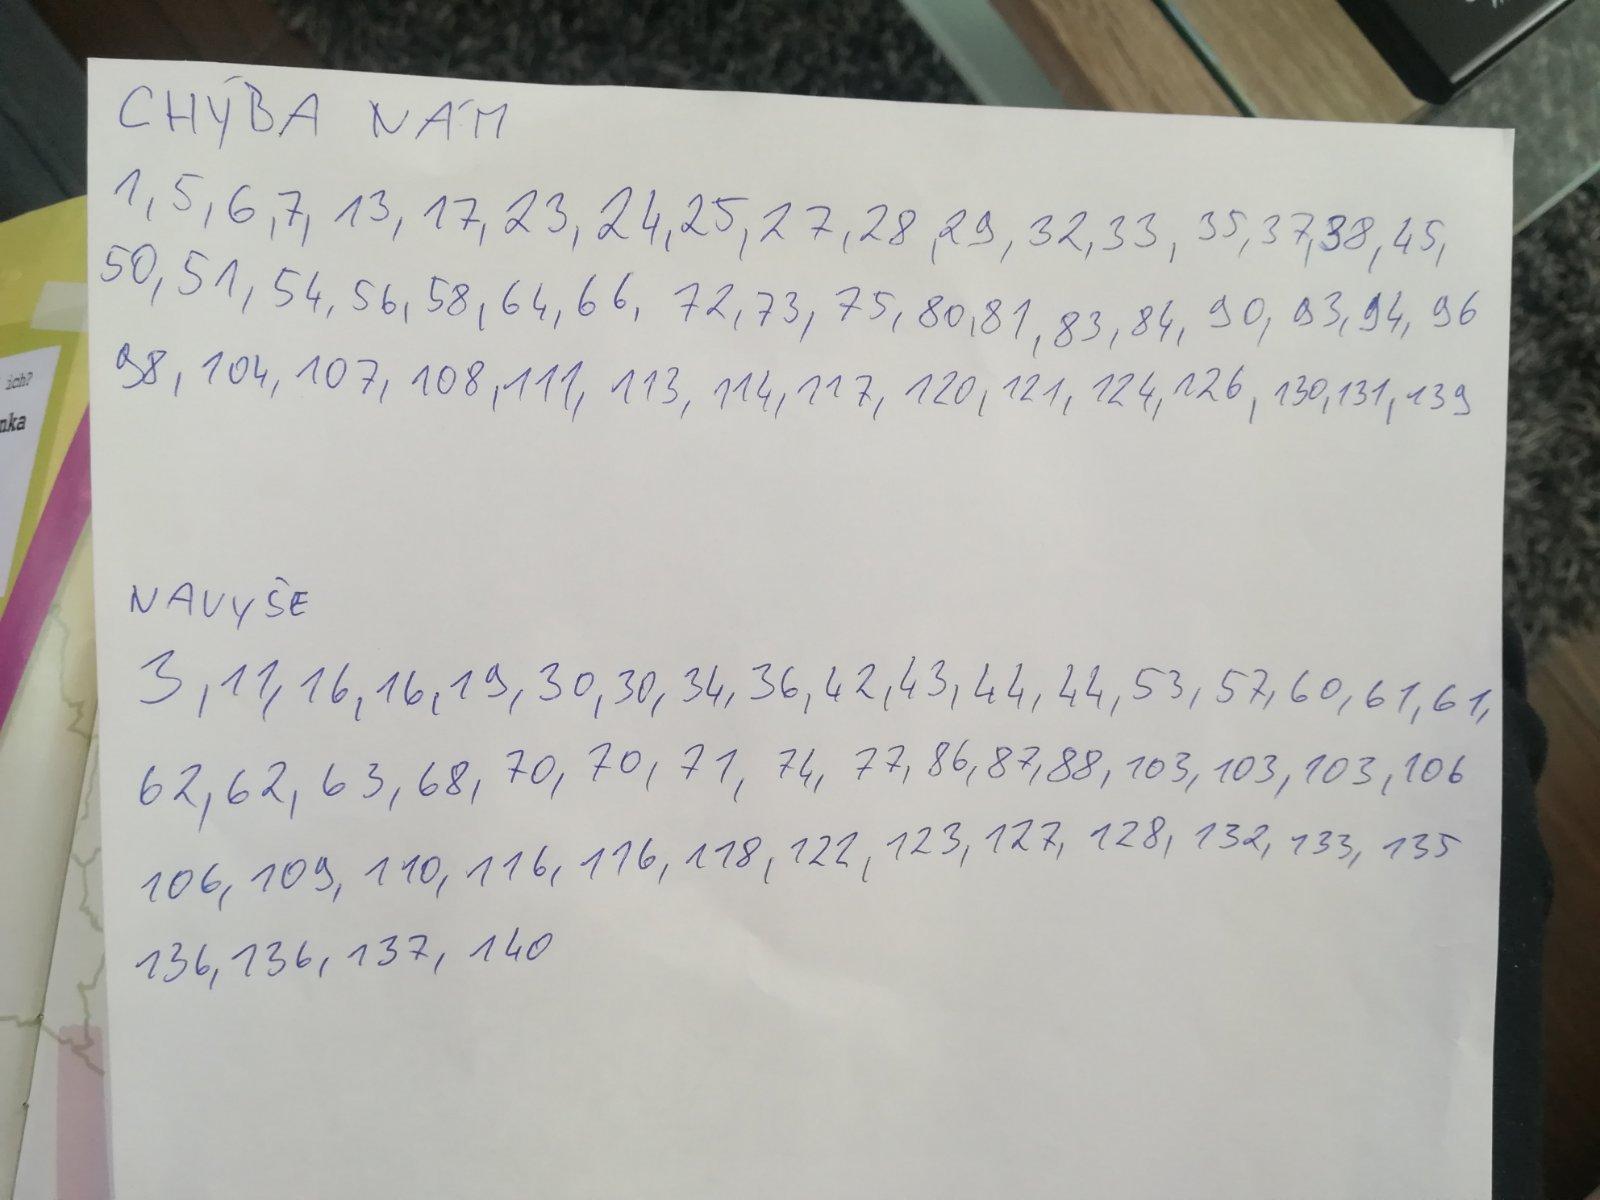 CHÝBA NÁM
1, 5, 6, 7, 13, 17, 23, 24, 25, 27, 28, 29, 32, 33, 35, 37, 38, 45,
50, 51, 54, 56, 58, 64, 66, 72, 73, 75, 80, 81, 83, 84, 90, 93, 94, 96
98, 104, 107, 108, 111, 113, 114, 117, 120, 121, 124, 126, 130, 131, 139
NAVYŠE
3, 11, 16, 16, 19, 30, 30, 34, 36, 42, 43, 44, 44, 53, 57, 60, 61, 61,
62, 62, 63, 68, 70, 70, 71, 74, 77, 86, 87, 88, 103, 103, 103, 106
106, 109, 110, 116, 116, 118, 122, 123, 127, 128, 132, 133, 135
136, 136, 137, 140
ich?
nka